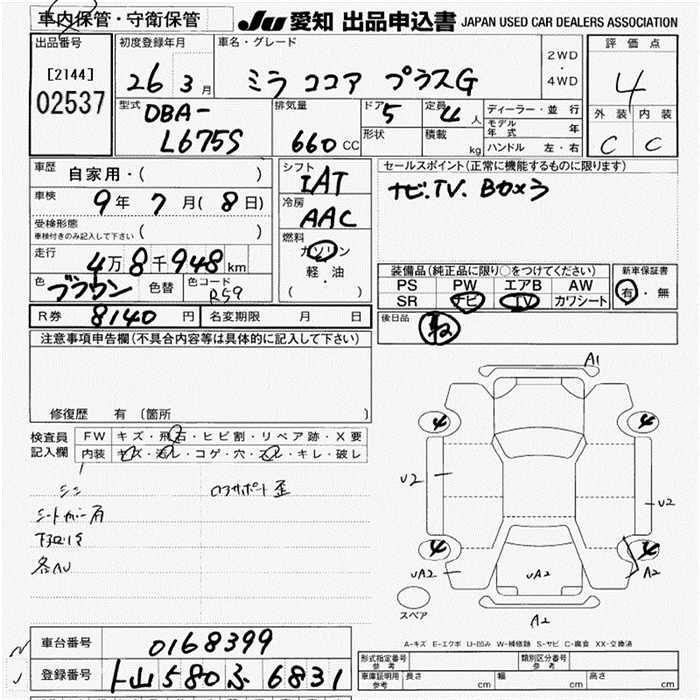 車内保管・守衛保管
JU 愛知 出品申込書 JAPAN USED CAR DEALERS ASSOCIATION
出品番号
[2144]
02537
初度登録年月
26 3月
車名・グレード
ミラ ココア プラスG
2WD
・
4WD
評価点
4
外装 内装
C C
型式
DBA-
L675S
排気量
660 CC
ドア 5
形状
定員 4 人
積載 kg
ディーラー・並行
モデル年式 年
ハンドル 左・右
車歴 自家用・( )
車検 9年 7月(8日)
受検形態
車検付きのみ記入して下さい ( )
走行
4万8千948km
色 ブラウン 色替 色コード R59
シフト
IAT
冷房
AAC
燃料
ガソリン
軽・油
( )
セールスポイント(正常に機能するものに限ります)
ナビ.TV. Boxう
装備品(純正品に限り○をつけてください)
PS PW エアB AW
SR ナビ TV カワシート
新車保証書
有・無
R券 8140円 名変期限 月 日
後日品
注意事項申告欄(不具合内容等は具体的に記入して下さい)
修復歴 有 (箇所 )
検査員
記入欄
FW キズ・飛石・ヒビ割・リペア跡・X要
内装 キズ・汚レ・コゲ・穴・スレ・キレ・破レ
シシ
ロアサポート歪
下回りキ
各AU
A1
4
4
U2
U2
4
4
UA2
UA2
A2
A2
スペア
A-キズ E-エクボ U-凹み W-補修跡 S-サビ C-腐食 XX-交換済
車台番号 0168399
登録番号 580 ふ 6831
形式指定番号
参考
類別区分番号
参考
車庫証明用
参考
長さ cm 幅 cm 高さ cm